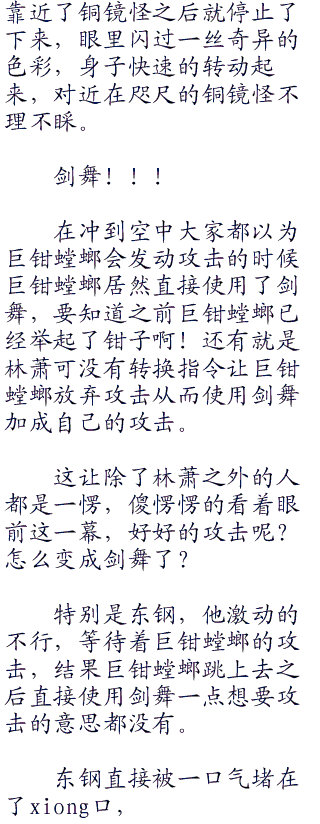 靠近了铜镜怪之后就停止了
下来，眼里闪过一丝奇异的
色彩，身子快速的转动起
来，对近在咫尺的铜镜怪不
理不睬。
剑舞！！！
在冲到空中大家都以为
巨钳螳螂会发动攻击的时候
巨钳螳螂居然直接使用了剑
舞，要知道之前巨钳螳螂已
经举起了钳子啊！还有就是
林萧可没有转换指令让巨钳
螳螂放弃攻击从而使用剑舞
加成自己的攻击。
这让除了林萧之外的人
都是一愣，傻愣愣的看着眼
前这一幕，好好的攻击呢？
怎么变成剑舞了？
特别是东钢，他激动的
不行，等待着巨钳螳螂的攻
击，结果巨钳螳螂跳上去之
后直接使用剑舞一点想要攻
击的意思都没有。
东钢直接被一口气堵在
了xiong口，